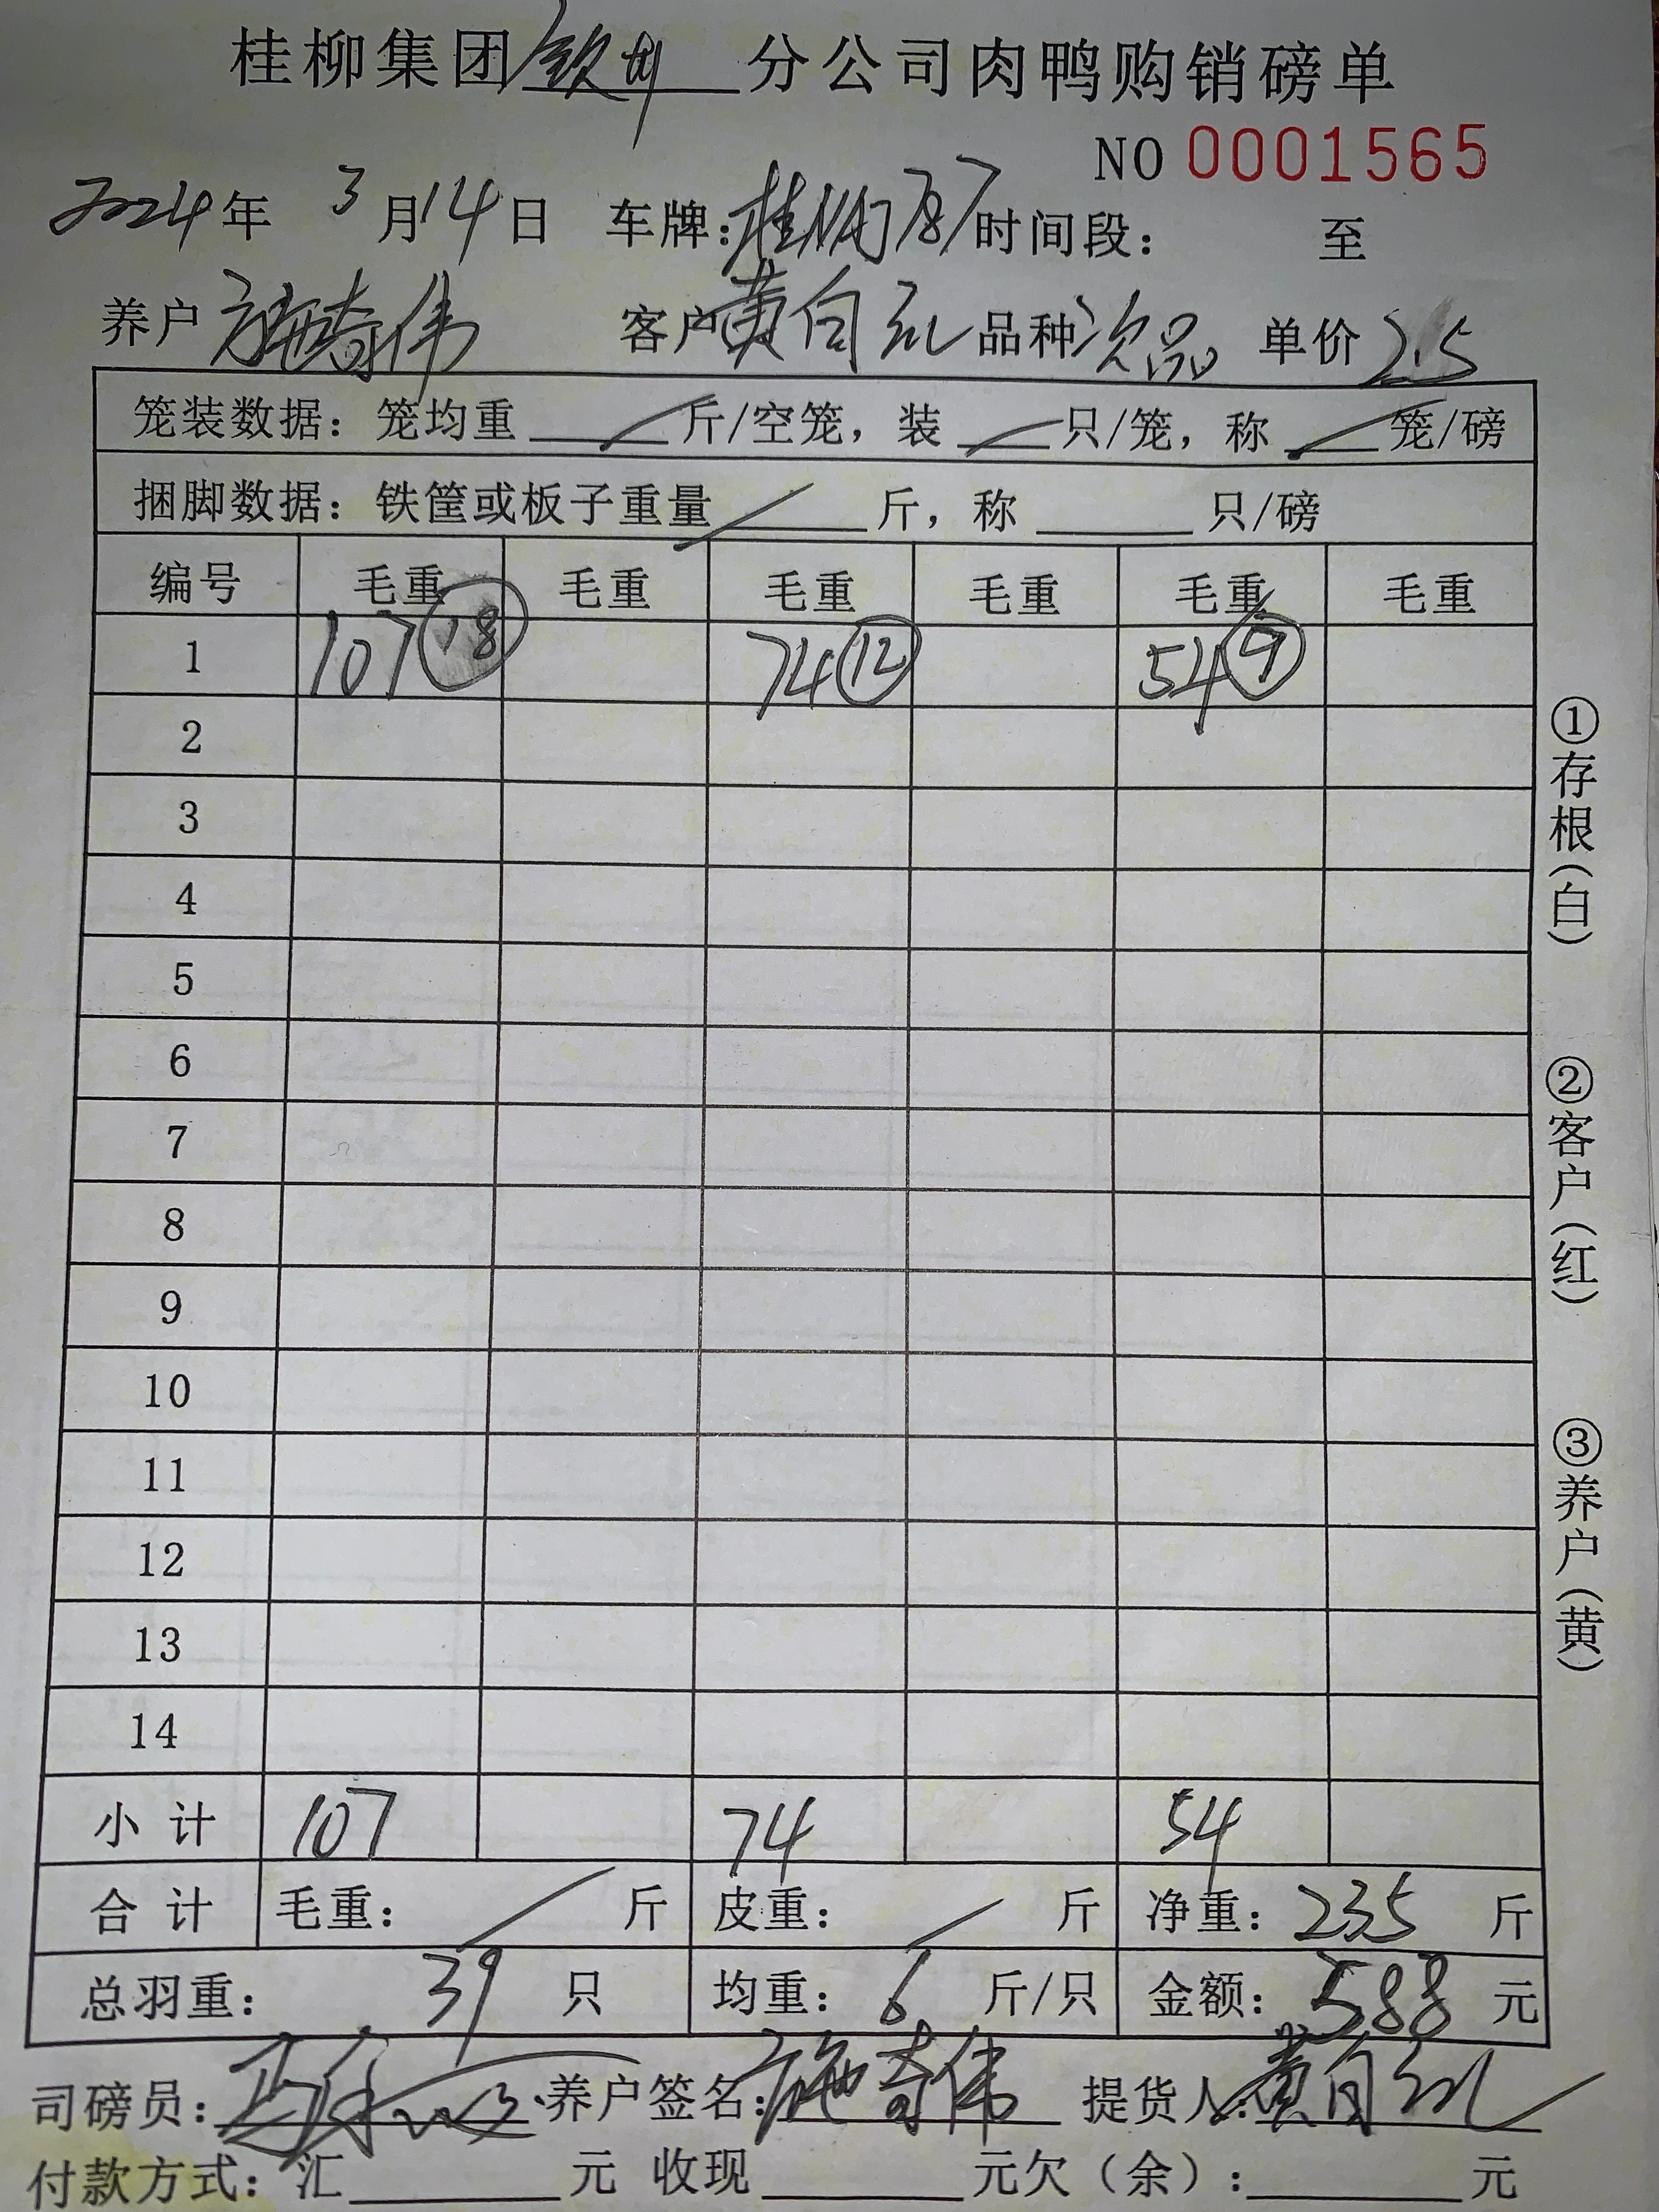 桂柳集团钦州分公司肉鸭购销磅单
NO 0001565
2024年 3月14日 车牌: 时间段: 至
养户 施奇伟 客户 黄自红 品种 次品 单价 2.5
笼装数据: 笼均重 斤/空笼, 装 只/笼, 称 笼/磅
捆脚数据: 铁筐或板子重量 斤, 称 只/磅
编号 毛重 毛重 毛重 毛重 毛重 毛重
1 107 18 74 12 54 9
2
3
4
5
6
7
8
9
10
11
12
13
14
小计 107 74 54
合计 毛重: 斤 皮重: 斤 净重: 235 斤
总羽重: 39 只 均重: 6 斤/只 金额: 588 元
司磅员: 养户签名: 施奇伟 提货人: 黄自红
付款方式: 汇 元 收现 元欠(余): 元
①存根(白)
②客户(红)
③养户(黄)